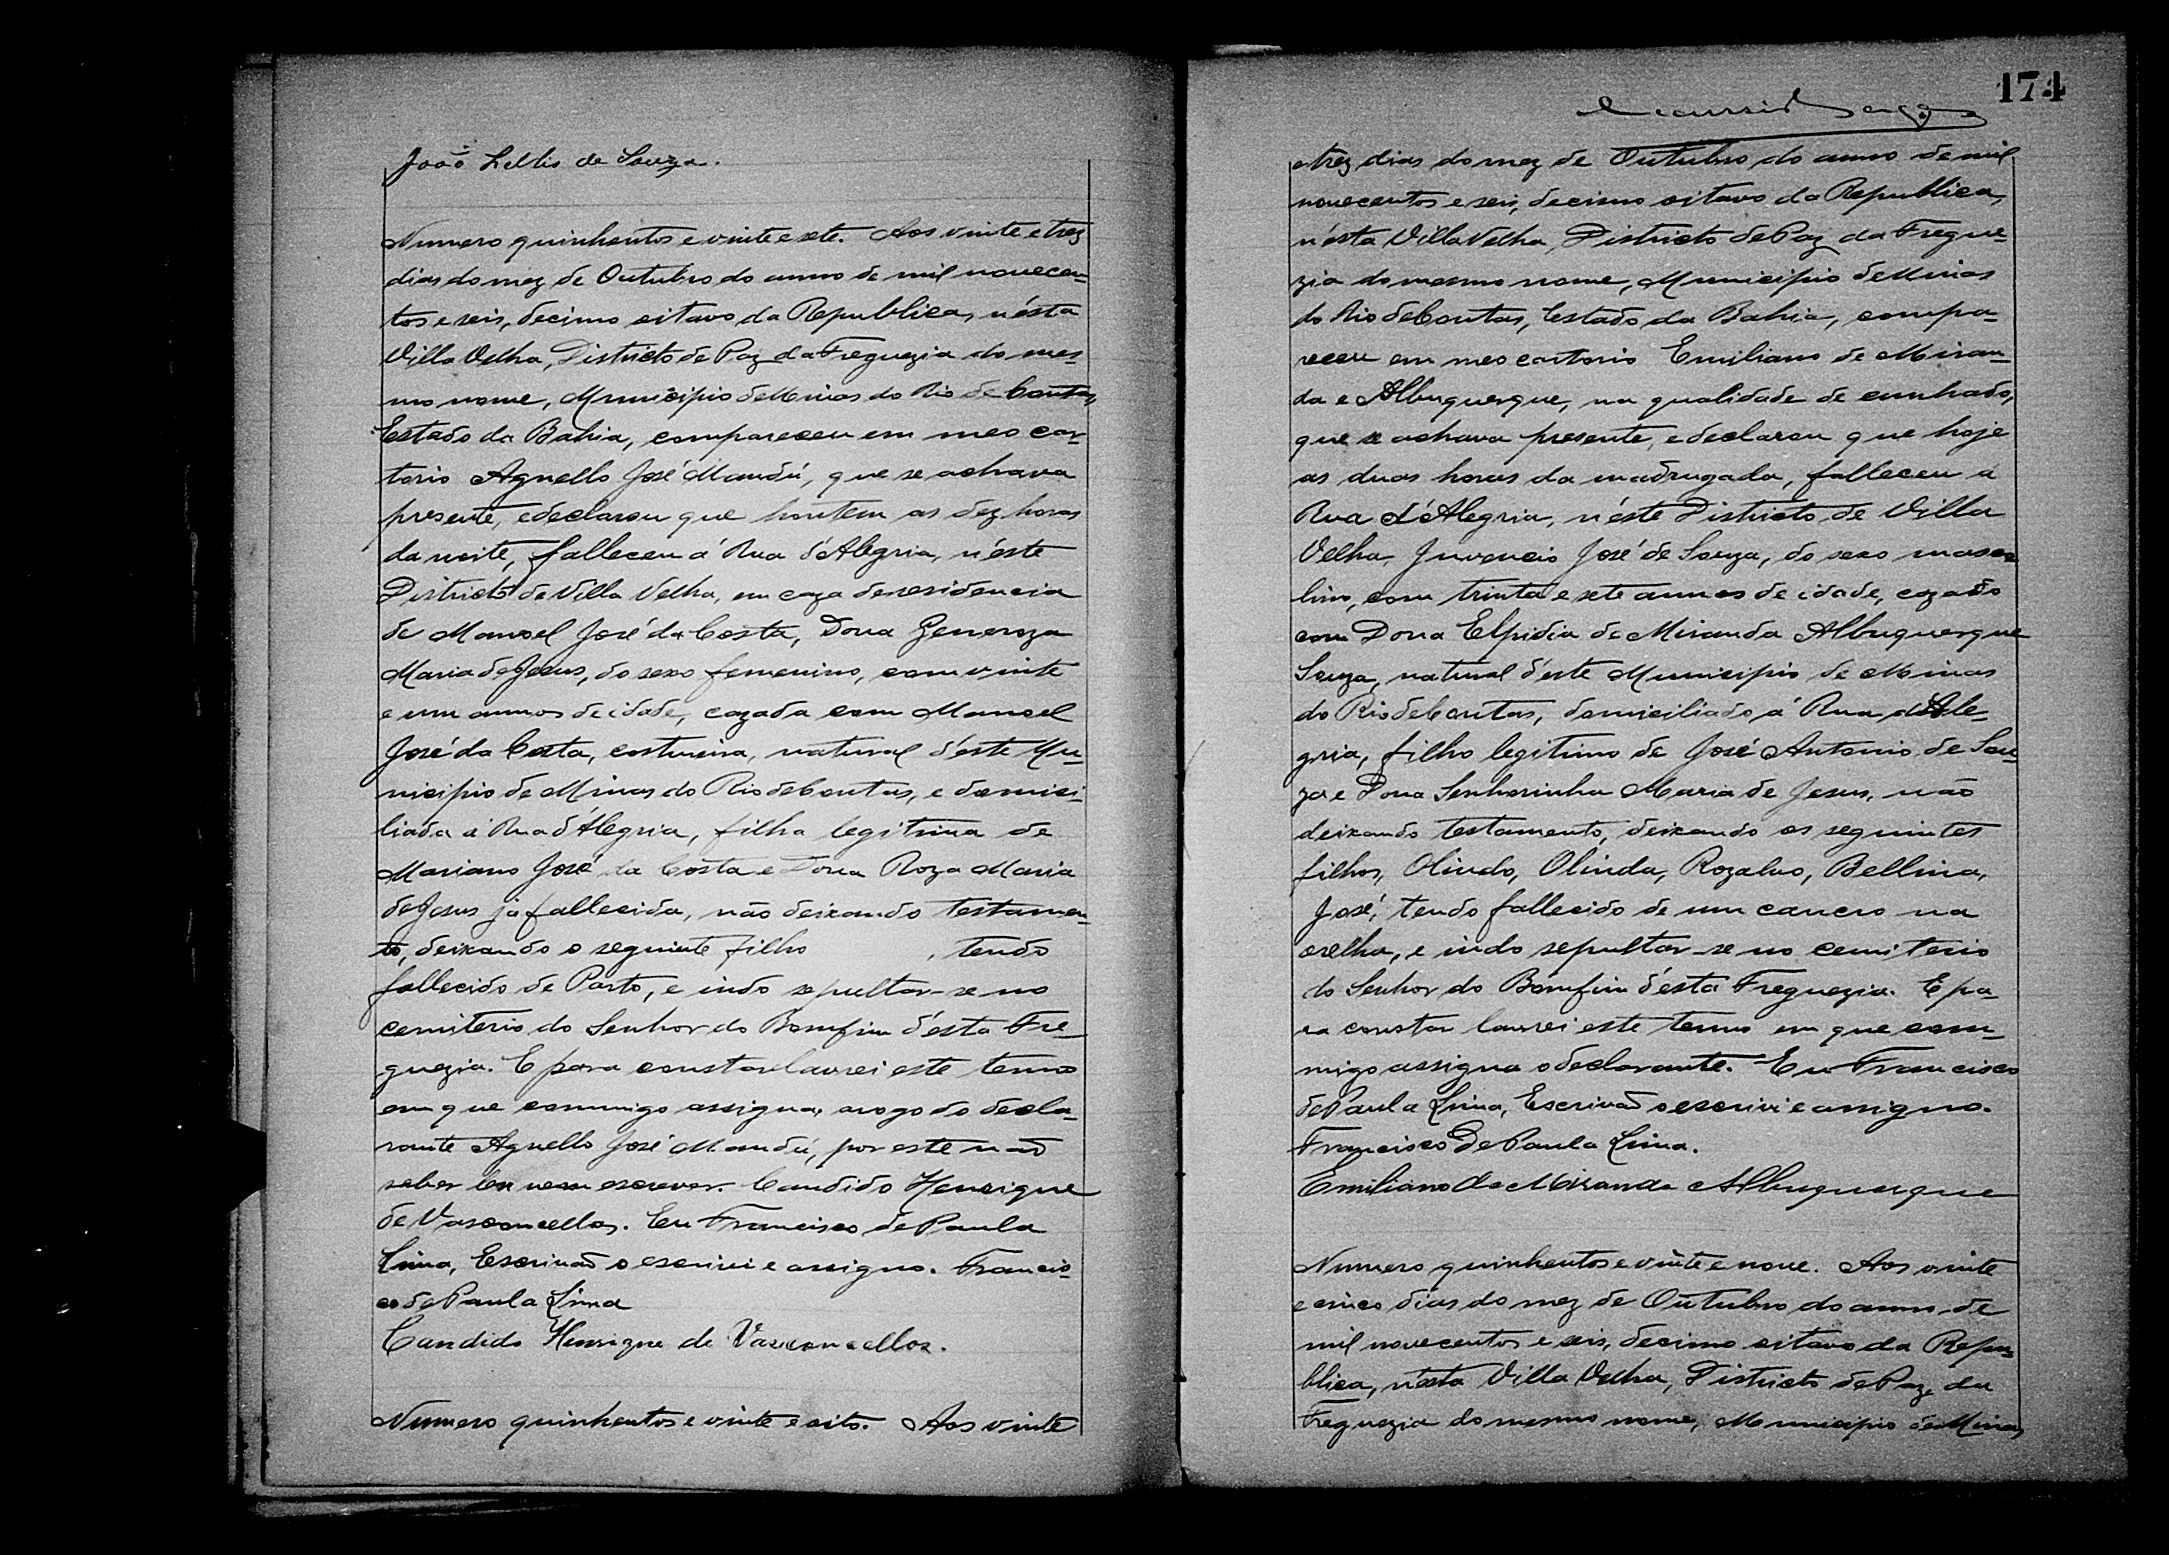 João Lellis de Souza.
Numero quinhentos e vinte e sete. Aos vinte e trez
dias do mez de Outubro do anno de mil novecen-
tos e seis, decimo oitavo da Republica, n'ésta
Villa Velha, Districto de Paz da Freguezia do mes-
mo nome, Municipio de Minas do Rio de Contas,
Estado da Bahia, compareceu em meo car-
torio Agnello José Mandú, que se achava
presente, e declarou que hontem as dez horas
da noite, falleceu á Rua d'Alegria, n'éste
Districto de Villa Velha, em caza de residencia
de Manoel José da Costa, Dona Generoza
Maria de Jesus, do sexo femenino, com vinte
e um annos de idade, cazada com Manoel
José da Costa, costureira, natural d'éste Mu-
nicipio de Minas do Rio de Contas, e domici-
liada á Rua d'Alegria, filha legitima de
Mariano José da Costa e Dona Roza Maria
de Jesus já fallecida, não deixando testamen-
to, deixando o seguinte filho , tendo
fallecido de Parto, e indo sepultar-se no
cemiterio do Senhor do Bomfim d'ésta Fre-
guezia. E para constar lavrei este termo
em que commigo assigna, arogo do decla-
rante Agnello José Mandú, por este não
saber ler nem escrever. Candido Henrique
de Vasconcellos. Eu Francisco de Paula
Lima, Escrivão o escrivi e assigno. Francis-
co de Paula Lima
Candido Henrique de Vasconcellos.
Numero quinhentos e vinte e oito. Aos vinte
174
e trez dias do mez de Outubro do anno de mil
novecentos e seis, decimo oitavo da Republica,
n'ésta Villa Velha, Districto de Paz da Fregue-
zia do mesmo nome, Municipio de Minas
do Rio de Contas, Estado da Bahia, compa-
receu em meo cartorio Emiliano de Miran-
da e Albuquerque, na qualidade de cunhado,
que se achava presente, e declarou que hoje
as duas horas da madrugada, falleceu á
Rua d'Alegria, n'éste Districto de Villa
Velha, Juvencio José de Souza, do sexo mascu-
lino, com trinta e sete annos de idade, cazado
com Dona Elpidia de Miranda Albuquerque
Souza, natural d'éste Municipio de Minas
do Rio de Contas, domiciliado á Rua d'Ale-
gria, filho legitimo de José Antonio de Sou-
za e Dona Senhorinha Maria de Jesus, não
deixando testamento, deixando os seguintes
filhos, Olindo, Olinda, Rozalvo, Bellina,
José, tendo fallecido de um cancro na
orelha, e indo sepultar-se no cemiterio
do Senhor do Bomfim d'ésta Freguezia. E pa-
ra constar lavrei este termo em que com-
migo assigna o declarante. Eu Francisco
de Paula Lima, Escrivão o escrivi e assigno.
Francisco de Paula Lima.
Emiliano de Miranda Albuquerque
Numero quinhentos e vinte e nove. Aos vinte
e cinco dias do mez de Outubro do anno de
mil novecentos e seis, decimo oitavo da Repu-
blica, n'ésta Villa Velha, Districto de Paz da
Freguezia do mesmo nome, Municipio de Minas